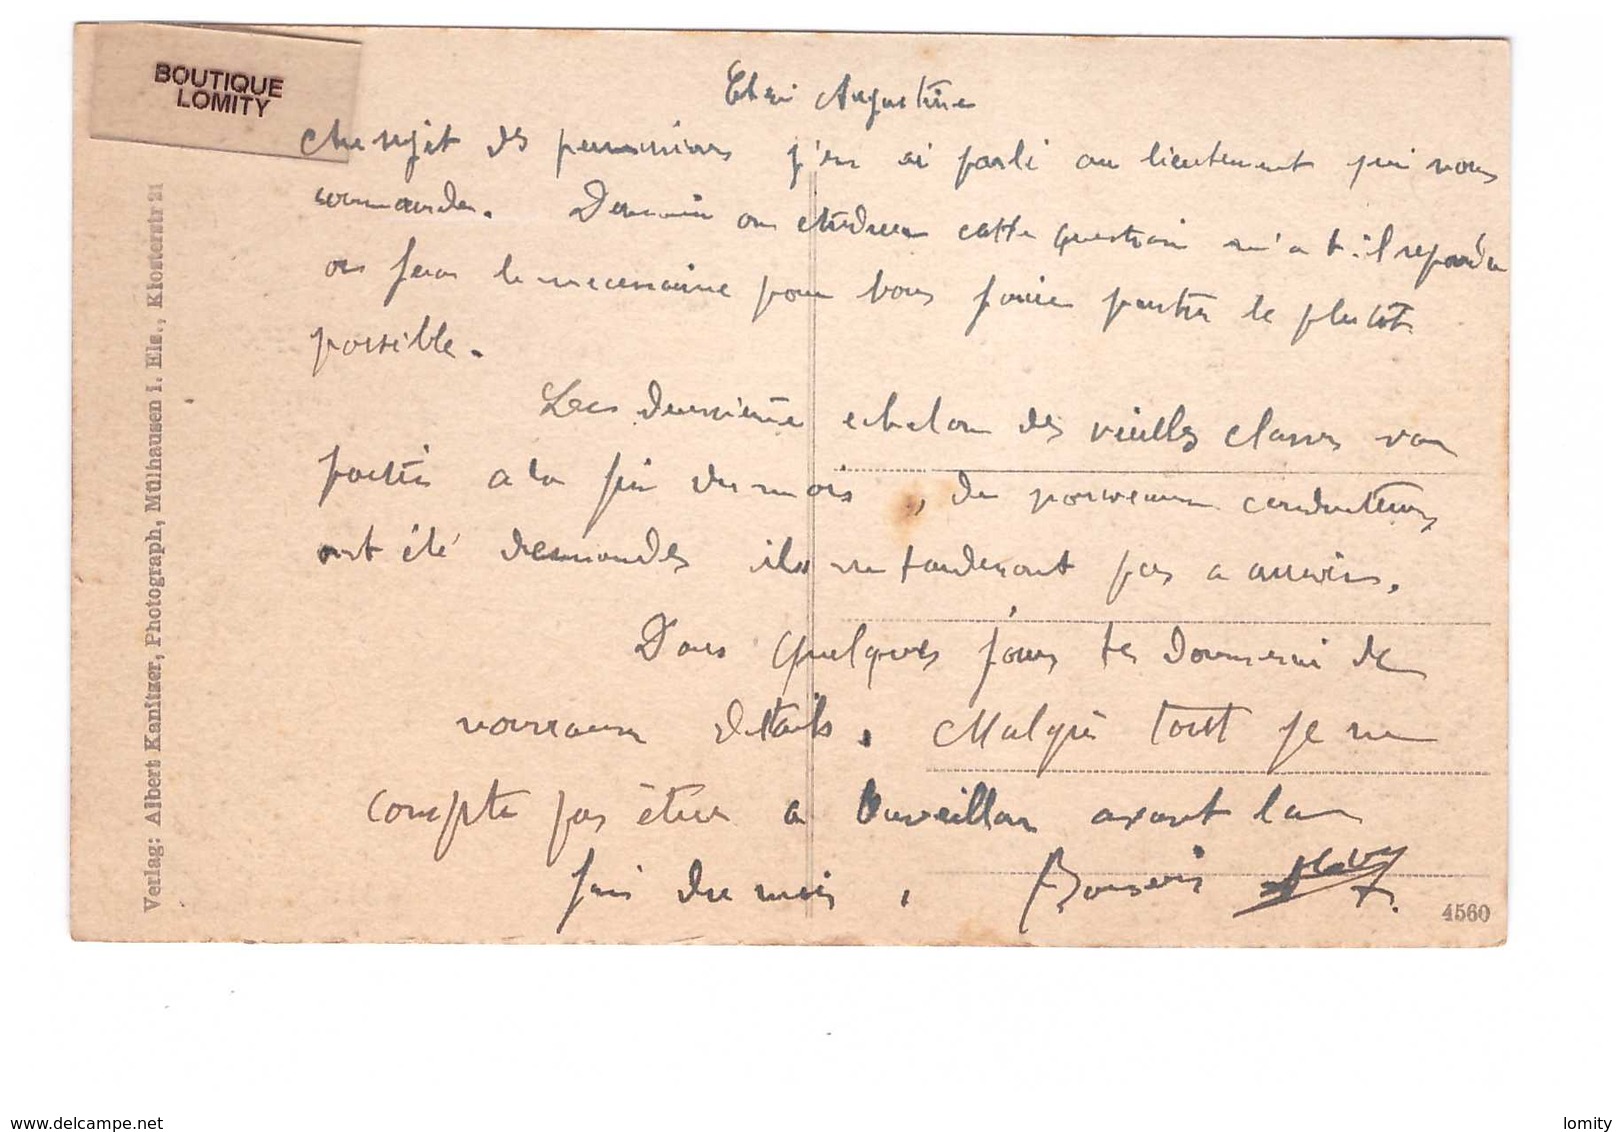 BOUTIQUE
LOMITY
Augustine
Au sujet des permissions j'en ai parlé au lieutenant qui nous
commande. Demain on étudiera cette question m'a t-il repondu
on fera le necessaire pour vous faire partir le plutôt
possible.
Les deuxième echelon des vieilles classes von
partir a la fin du mois, de nouveaux conducteurs
ont été demandés ils ne tarderont pas a arriver.
Dans quelques jours te donnerai de
nouveaux détails. Malgré tout je ne
compte pas être a Ouveillan avant la
fin du mois,
Verlag: Albert Kanitzer, Photograph, Mülhausen i. Els., Klosterstr 21
4560
www.delcampe.net
lomity